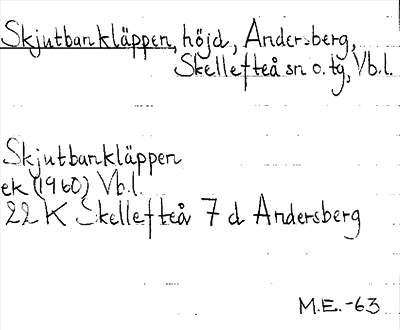 Skjutbankläppen, höjd, Andersberg,
Skellefteå sn o. tg, Vb.l.
Skjutbankläppen
ek (1960) Vb.l.
22 K Skellefteå 7 d Andersberg
M.E.-63